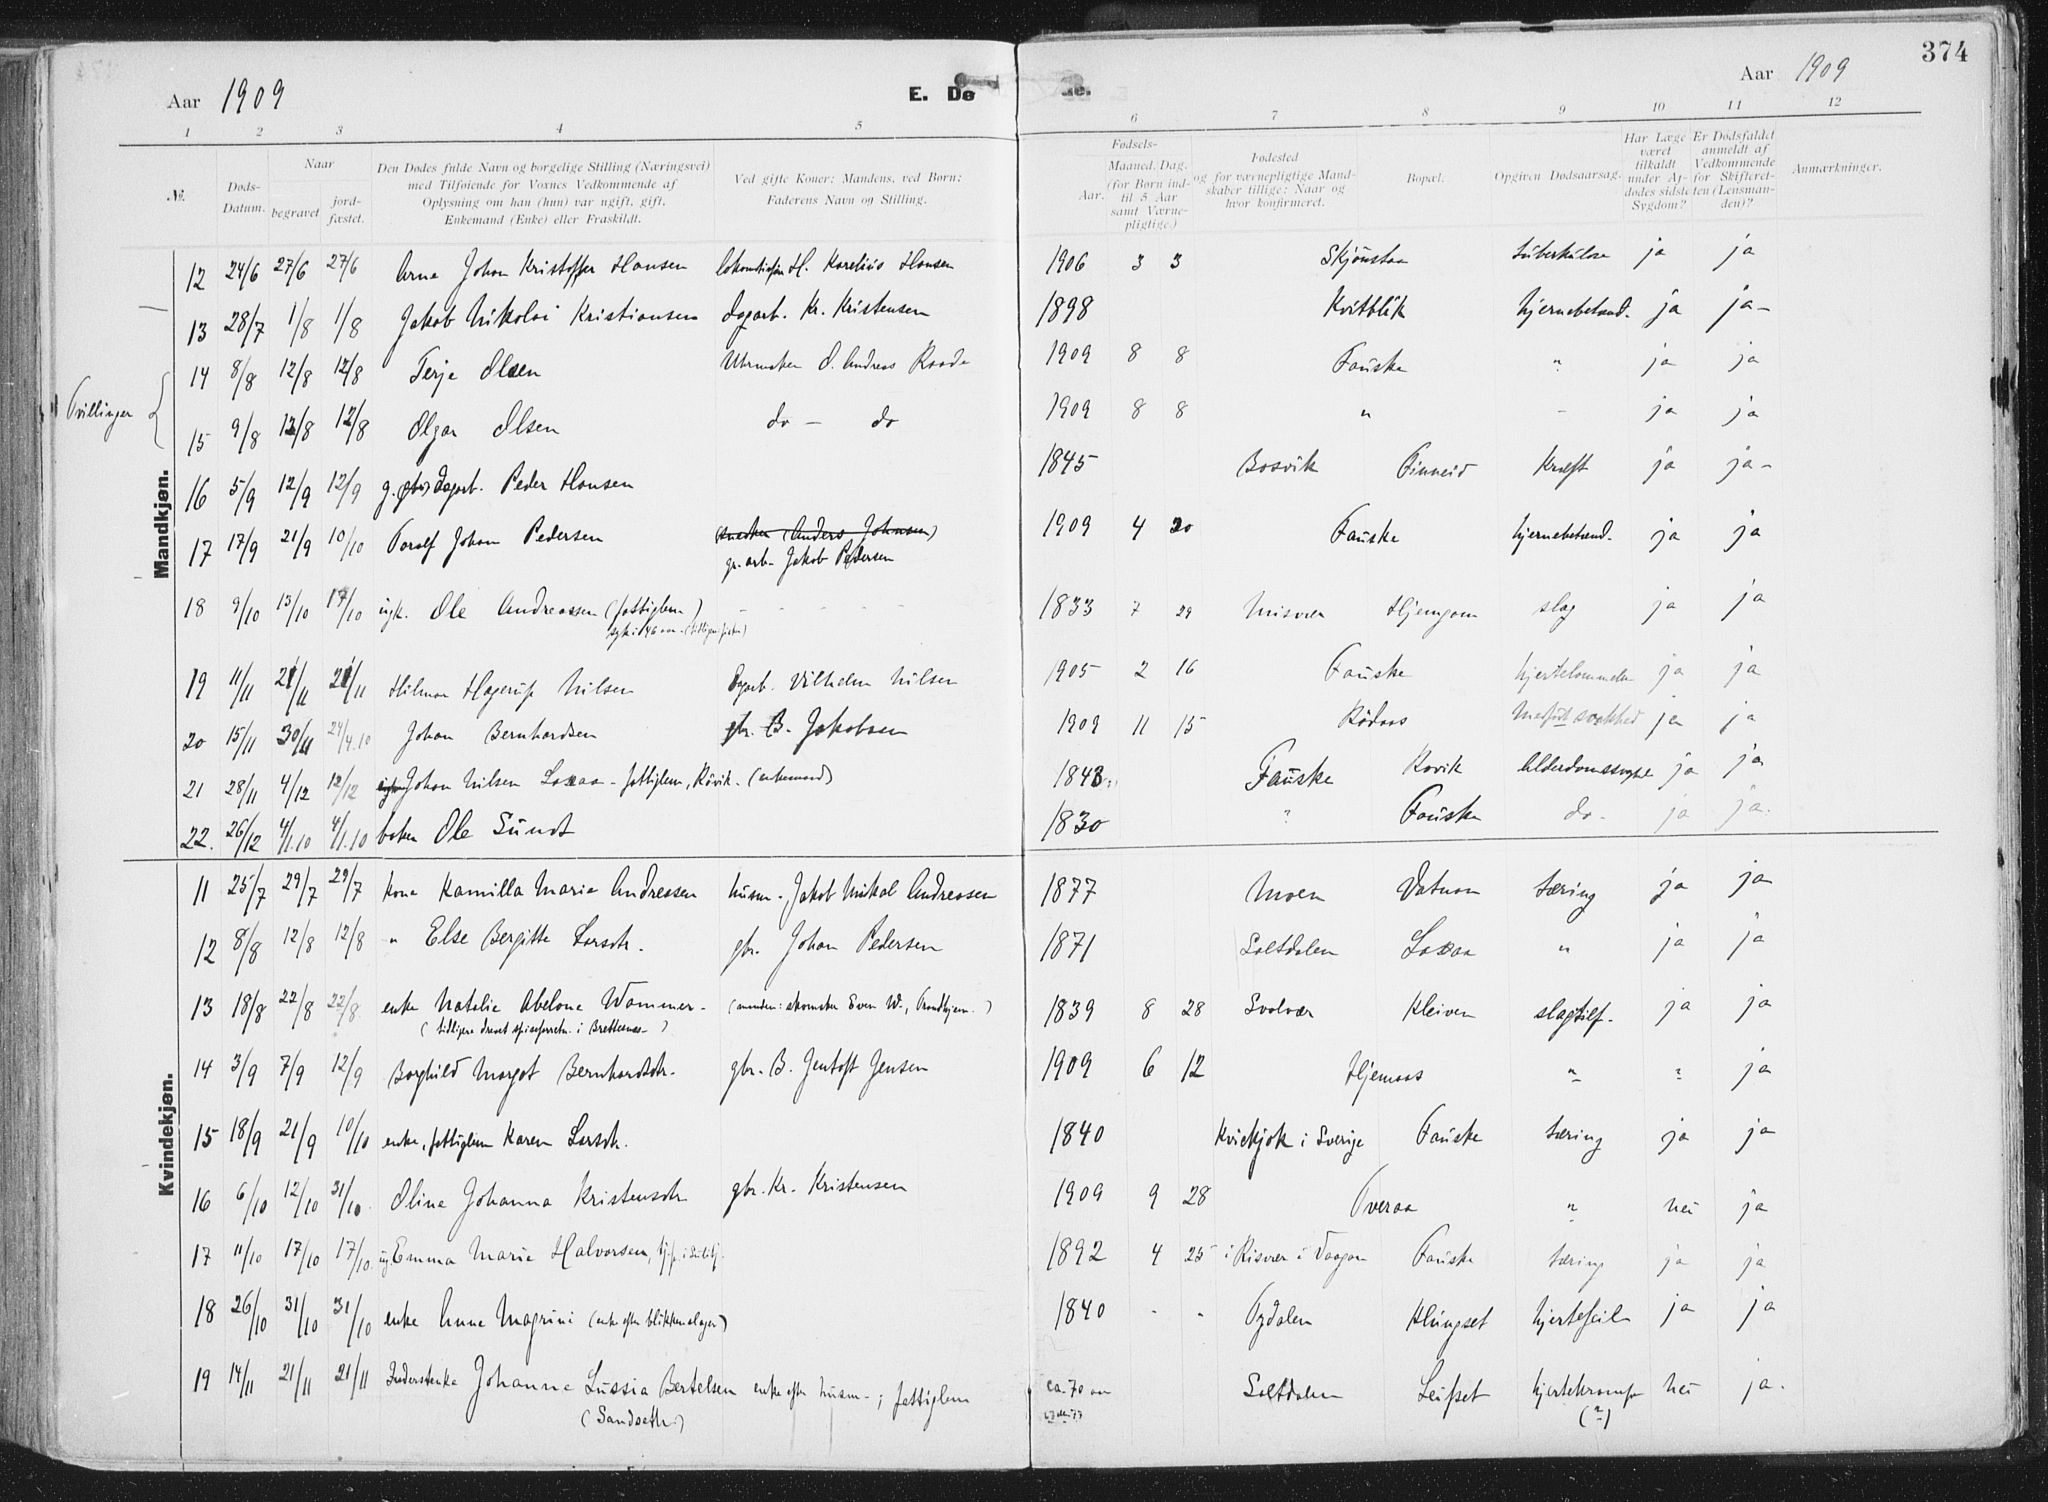 374
Aar 1909 E. Dø de. Aar 1909
1 2 3 4 5 6 7 8 9 10 11 12
No.
Døds-Datum.
Naar
begravet
jordfæstet.
Den Dødes fulde Navn og borgelige Stilling (Næringsvei)
med Tilføiende for Voxnes Vedkommende af
Oplysning om han (hun) var ugift, gift,
Enkemand (Enke) eller Fraskildt.
Ved gifte Koner: Mandens, ved Børn:
Faderens Navn og Stilling.
Fødsels-
Aar. Maaned. Dag.
(for Børn ind-
til 5 Aar
samt Værne-
pligtige.)
Fødested
og for værnepligtige Mand-
skaber tillige: Naar og
hvor konfirmeret.
Bopæl.
Opgiven Dødsaarsag.
Har Læge
været
tilkaldt
under Af-
dødes sidste
Sygdom?
Er Dødsfaldet
anmeldt af
Vedkommende
for Skifteret-
ten (Lensman-
den)?
Anmærkninger.
Mandkjøn.
12 24/6 27/6 27/6 Arne Johan Kristoffer Hansen H. Karelius Hansen 1906 3 3 Skjönstaa tuberkulose ja ja
13 28/7 1/8 1/8 Jakob Nikolai Kristiansen dagarb. Kr. Kristensen 1898 Kvitblik hjernebetænd. ja ja-
Tvillinger
14 8/8 12/8 12/8 Terje Olsen Uhrmaker O. Andreas Raade 1909 8 8 Fauske " ja ja
15 9/8 12/8 12/8 Olgar Olsen do - do 1909 8 8 " - ja ja
16 5/9 12/9 12/9 g. dagarb. Peder Hansen 1845 Bosvik Finneid Kræft ja ja-
17 17/9 21/9 10/10 Toralf Johan Pedersen (snedker (Anders Johnsen) 1909 4 20 Fauske hjernebetænd. ja ja
gr. arb. Jakob Pedersen
18 9/10 13/10 17/10 ugk. Ole Andreassen (fattiglem) - - - - - 1833 7 29 Misvær Hjemgam slag ja ja
syk i 46 aar.
19 11/11 21/11 21/11 Hilmar Hagerup Nilsen Dagarb. Vilhelm Nilsen 1905 2 16 Fauske hjertelammelse ja ja
20 15/11 30/11 24/4.10 Johan Bernhardsen gbr. B. Jakobsen 1909 11 15 Rödaas Medfödt svakhed ja ja
21 28/11 4/12 12/12 Johan Nilsen Laxaa - fattiglem, Rövik. (enkemand) 1843 Fauske Rovik Alderdomssvaghed ja ja
22. 26/12 4/1.10 4/1.10 baker Ole Sundt 1830 " Fauske do. ja ja.
Kvindekjøn.
11 25/7 29/7 29/7 kone Kamilla Marie Andreasen husm. Jakob Mikal Andreasen 1877 Moen Vatnan tæring ja ja
12 8/8 12/8 12/8 " Else Bergitte Larsdtr. gbr. Johan Pedersen 1871 Saltdalen Laxaa " ja ja
13 18/8 22/8 22/8 enke Natalie Abelone Wammer. (manden: skomaker Even W., Trondhjem.) 1839 8 28 Svolvær Kleiven slagtilf. ja ja
(tidligere drevet spiseforretn. i Brettesnes)
14 3/9 7/9 12/9 Borghild Margot Bernhardsdtr. gbr. B. Jentoft Jensen 1909 6 12 Hjemaas " " ja
15 18/9 21/9 10/10 enke, fattiglem Karen Larsdtr. 1840 Kvickjok i Sverige Fauske tæring ja ja
16 6/10 12/10 31/10 Oline Johanna Kristensdtr gbr. Kr. Kristensen 1909 9 28 Tveraa " nei ja
17 11/10 17/10 17/10 ug. Emma Marie Halvorsen, 1892 4 25 i Risvær i Vaagan Fauske tæring ja ja
18 26/10 31/10 31/10 enke Anne Magrini (enke efter blikkenslager) 1840 - " Tydalen Klungset hjertefeil ja ja
19 14/11 21/11 21/11 Inderstenke Johanna Lussia Bertelsen enke efter husm. ; fattiglem ca. 70 aar Saltdalen Leifset hjertekrampe nei ja.
(Sandseth) (?)